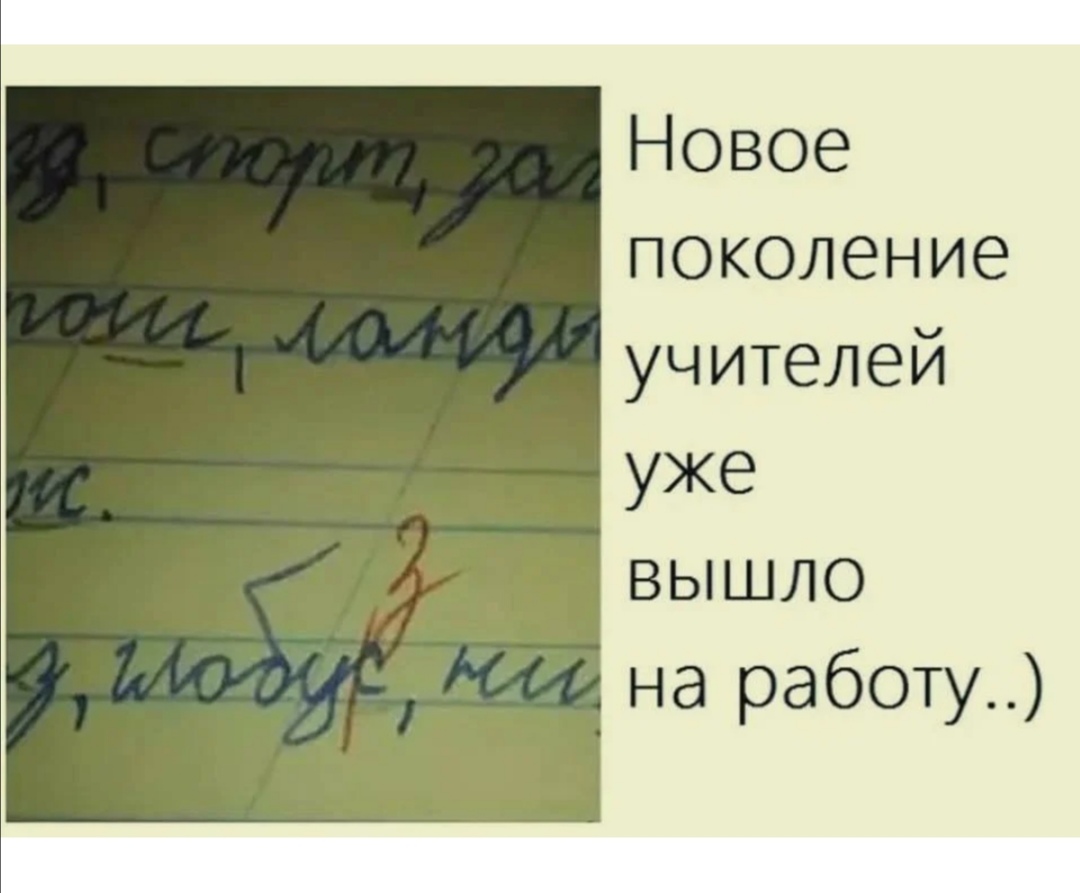 зд, спорт, за
ош, ланды
ж.
з
з, глобус, ни
Новое
поколение
учителей
уже
вышло
на работу..)